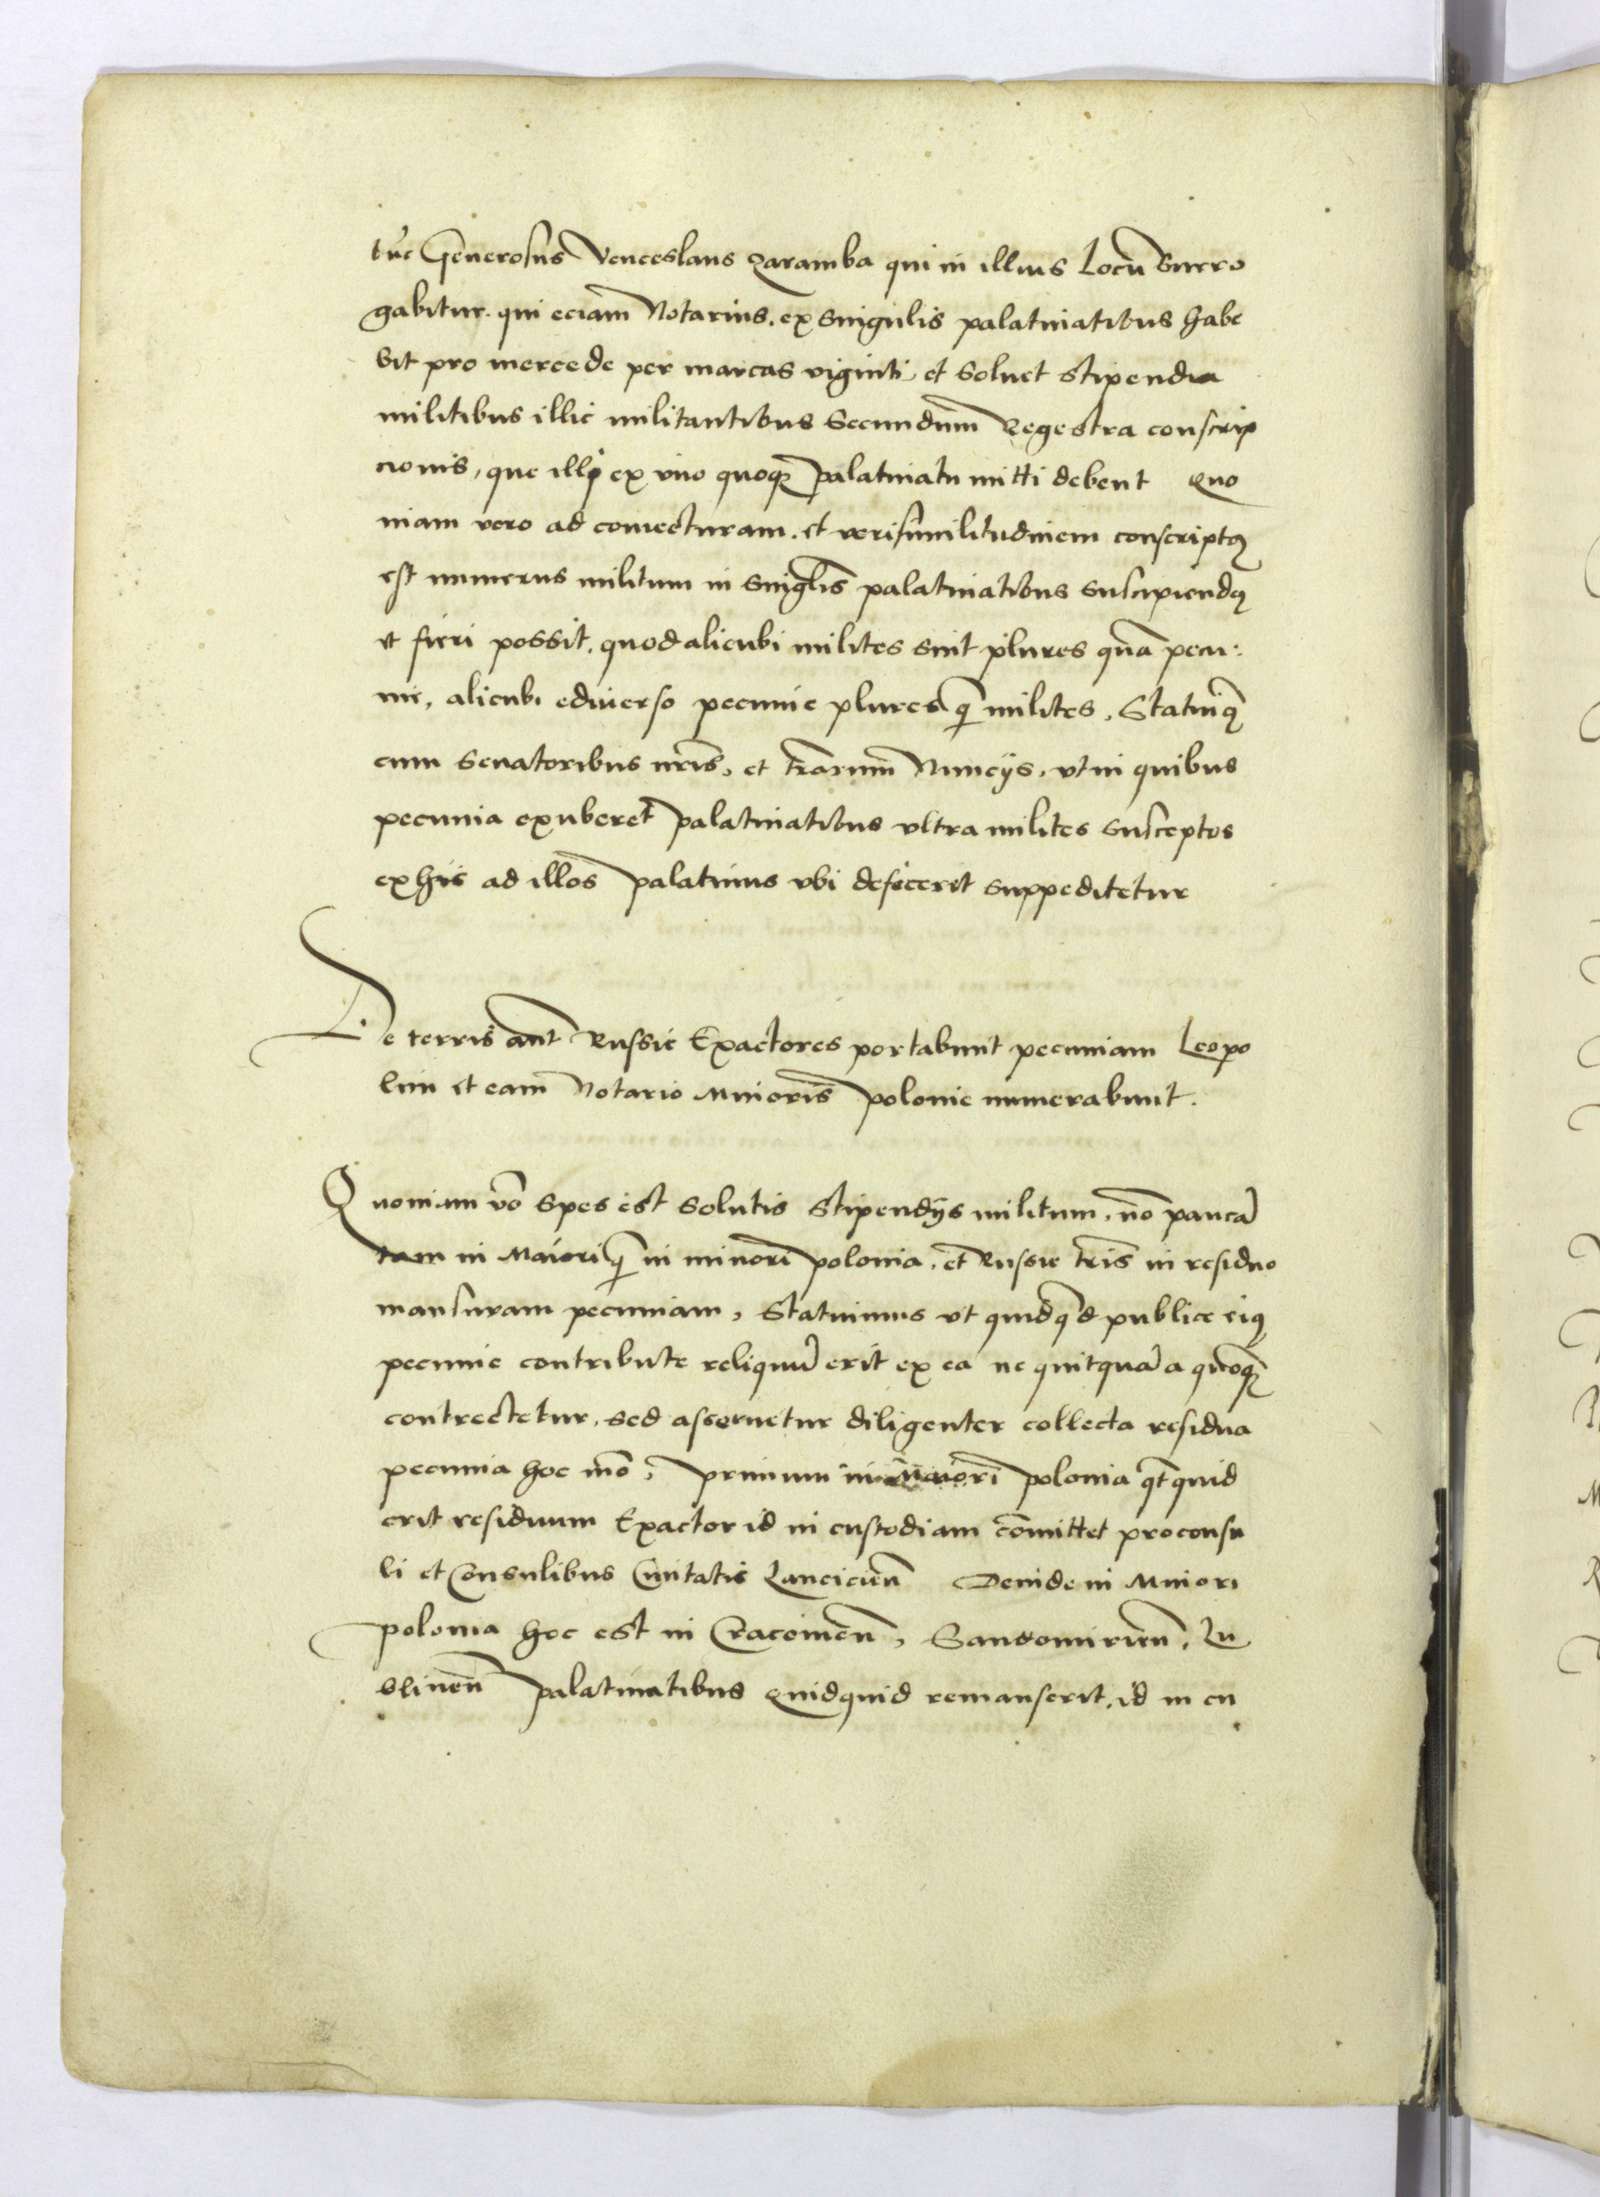 tūc Generosus Venceslaus Zaramba qui in illius Locū Surro
gabitur. qui eciam Notarius. ex singulis palatinatibus habe
bit pro mercede per marcas viginti et soluet stipendia
militibus illic militantibus Secundum Regestra conscrip
cionis, que illi ex vno quoque palatinatu mitti debent Quo
niam vero ad coniecturam. et verisimilitudinem conscriptus
est numerus militum in singlis palatinatibus suscipiendus
vt fieri possit. quod alicubi milites sint plures quā pecu:
nie, alicubi ediuerso pecunie plures quam milites, Statuimus
cum Senatoribus nris, et trarum Nuncijs, vt in quibus
pecunia exuberet palatinatibus vltra milites susceptos
ex his ad illos palatinus vbi defecerit suppeditetur
De terris aut Russie Exactores portabunt pecuniam Leopo
lim et eam Notario Minoris polonie numerabunt.
Quoniam vo spes est solutis stipendijs militum, nō paucā
tam in Maiori quam in minori polonia, et Russie tris in residuo
mansuram pecuniam, Statuimus vt quidquid publice eius
pecunie contribute reliquū erit ex ea ne quitquā a quoquam
contrectetur, sed asseruetur diligenter collecta residua
pecunia hoc mō, primum in Maiori polonia quitquid
erit residuum Exactor id in custodiam cōmittet proconsu
li et Consulibus Ciuitatis Lancicien Deinde in Minori
polonia hoc est in Cracouien, Sandomirien, Lu
blinen palatinatibus Quidquid remanserit, id in cu